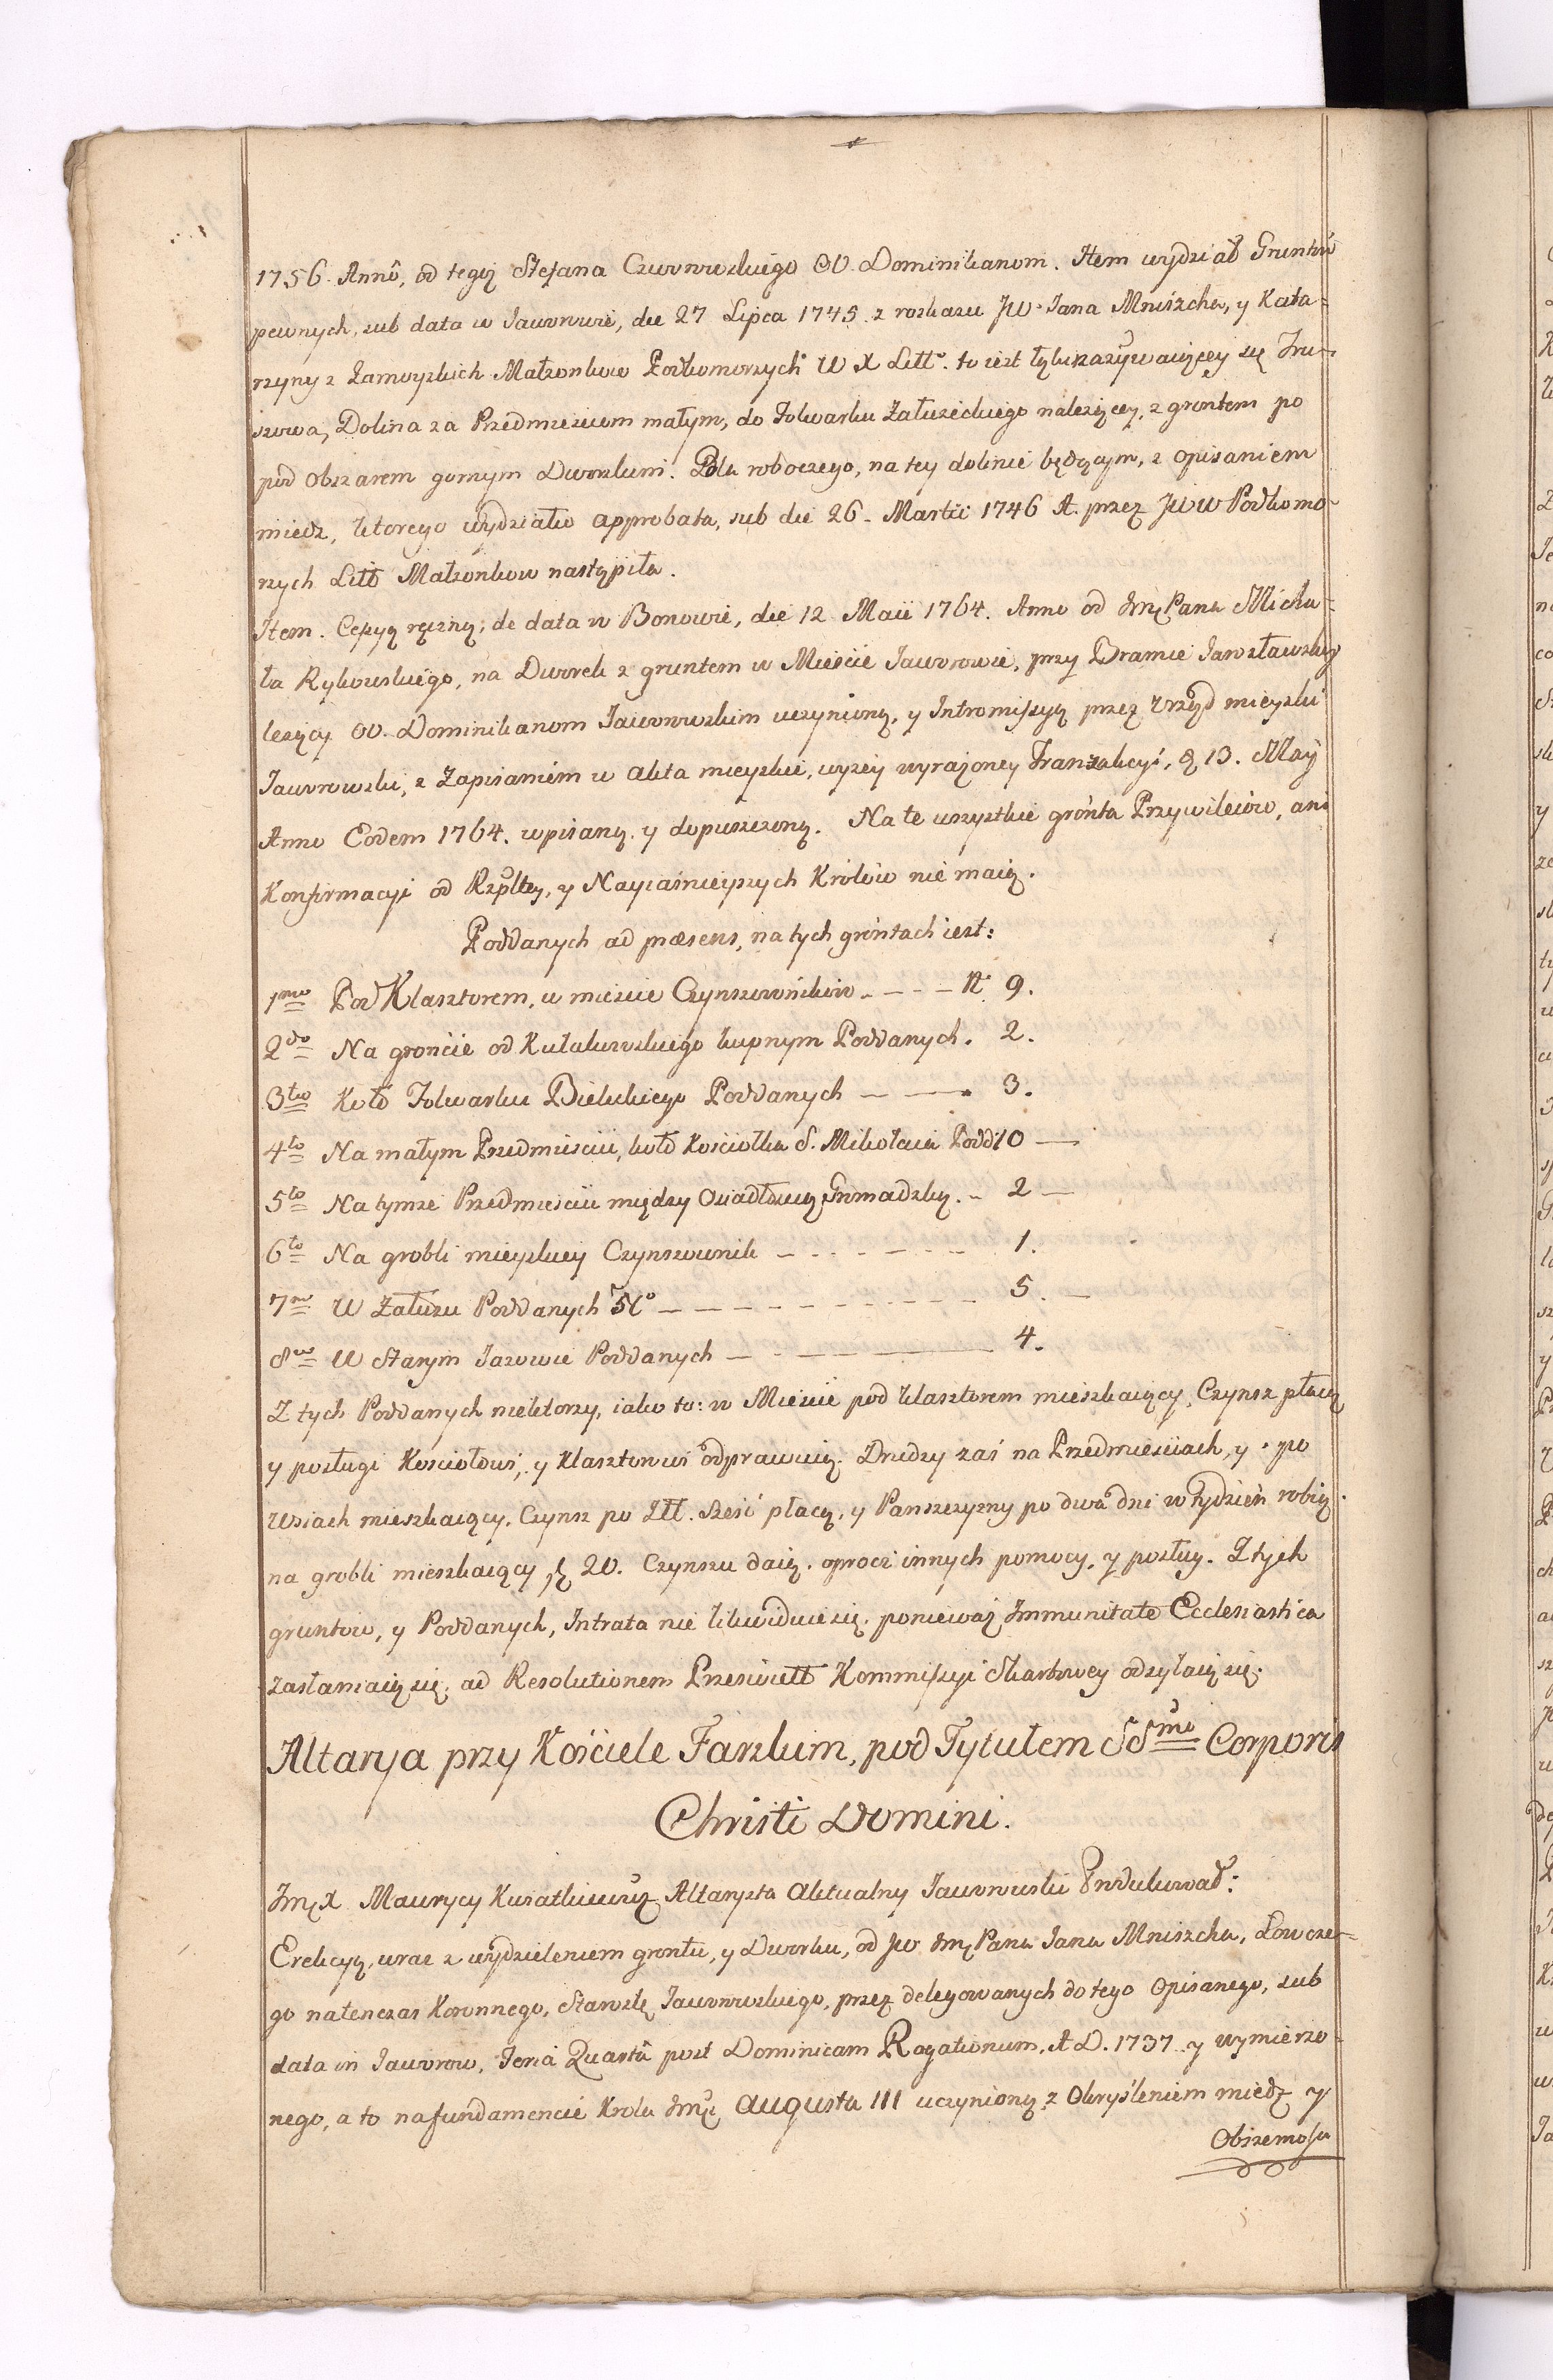 1756. Annô, od tegoż Stefana Czwornowskiego OO. Dominikanom. Item wydział Gruntów
pewnych, sub data w Jaworowie, die 27 Lipca 1745. z roskazu JW. Jana Mniszcha, y Kata=
rzyny z Zamoyskich Małżonkow Podkomorzych W X Litt. to iest Łęku nazywaiącey się
szowa, Dolina za Przedmieściem małym, do Folwarku Załuzickiego należącey, z grontem po
pod obszarem gornym Dworskim. Pola roboczego, na tey dolinie będącym, z opisaniem
miedz, ktorego wydziału approbata, sub die 26. Martii 1746 A. przez JWW Podkomo-
rzych Litt Małżonkow nastąpiła.
Item. Cessyą ręczną, de data w Bonowie, die 12 Maii 1764. Anno od Jmę Pana Micha=
ła Rykowskiego, na Dworek z gruntem w Mieście Jaworowie, przy Bramie Jarosławskiey
leżący OO. Dominikanom Jaworowskim uczynioną, y Intromissyą przez Urząd mieyski
Jaworowski, z Zapisaniem w Akta mieyskie, wyżey wyrażoney Tranzakcyi, 13. May
Anno Eodem 1764. wpisaną y dopuszczoną. Na te wszystkie grónta Przywileiów, ani
Konfirmacyi od Rzpltey, y Nayiaśnieyszych Królów nie maią.
Poddanych ad præsens, na tych gróntach iest:
1mo Pod Klasztorem, w mieście Czynszowników - - - - N 9.
2do Na gróncie od Kułakowskiego kupnym Poddanych. 2.
3tio Koło Folwarku Bielskiego Poddanych - - 3.
4to Na małym Przedmieściu, koło Kościołka S. Mikołaia Podd 10 -
5to Na tymże Przedmieściu między Osiadłością Gromadzką. - 2 -
6to Na grobli mieyskiey Czynszownik - - - - - - - 1.
7mo W Załużu Poddanych No - - - - - - - - - 5. -
8vo W Starym Jazowie Poddanych - - - 4.
Z tych Poddanych niektorzy, iako to: w Mieście pod klasztorem mieszkaiący, Czynsz płacą
y posługi Kosciołowi, y Klasztorowi odprawuią. Drudzy zaś na Przedmieściach, y po
Wsiach mieszkaiący, Czynsz po Złł. sześć płacą, y Panszczyzny po dwa dni w tydzień robią.
na grobli mieszkaiący, 20. Czynszu daią. oprocz innych pomocy, y posług. Z tych
gruntow, y Poddanych, Intrata nie likwiduie się, ponieważ Immunitate Ecclesiastica
zasłaniaią się, ad Resolutionem Przeświett Kommissyi Skarbowey odzyłaią się.
Altarya przy Kościele Farskim, pod Tytułem SSmo Corporis
Christi Domini.
Jmę X Maurycy Kwiatkiewicz Altarysta Aktualny Jaworowski Produkował:
Erekcyą, wraz z wydzieleniem grontu, y Dworku, od JW Jmę Pana Jana Mniszcha, Łowcze-
go natenczas Koronnego, Starostę Jaworowskiego, przez delegowanych do tego Opisanego, sub
data in Jaworow, Feria Quarta post Dominicam Rogationum, A D. 1737. y wymierzo-
nego, a to na fundamencie Krola Jmę Augusta III uczynioną z Okryśleniem miedz y
Obszernosu